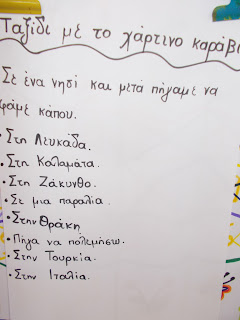 Ταξίδι μέ το χάρτινο καράβι
Σέ ένα νησί και μετά πήγαμε να
φάμε κάπου.
• Στη Λευκάδα.
• Στη Καλαμάτα.
• Στη Ζάκυνθο.
• Σε μια παραλία.
• Στην Θράκη
• Πήγα να πολεμήσω.
• Στην Τουρκία.
• Στην Ιταλία.